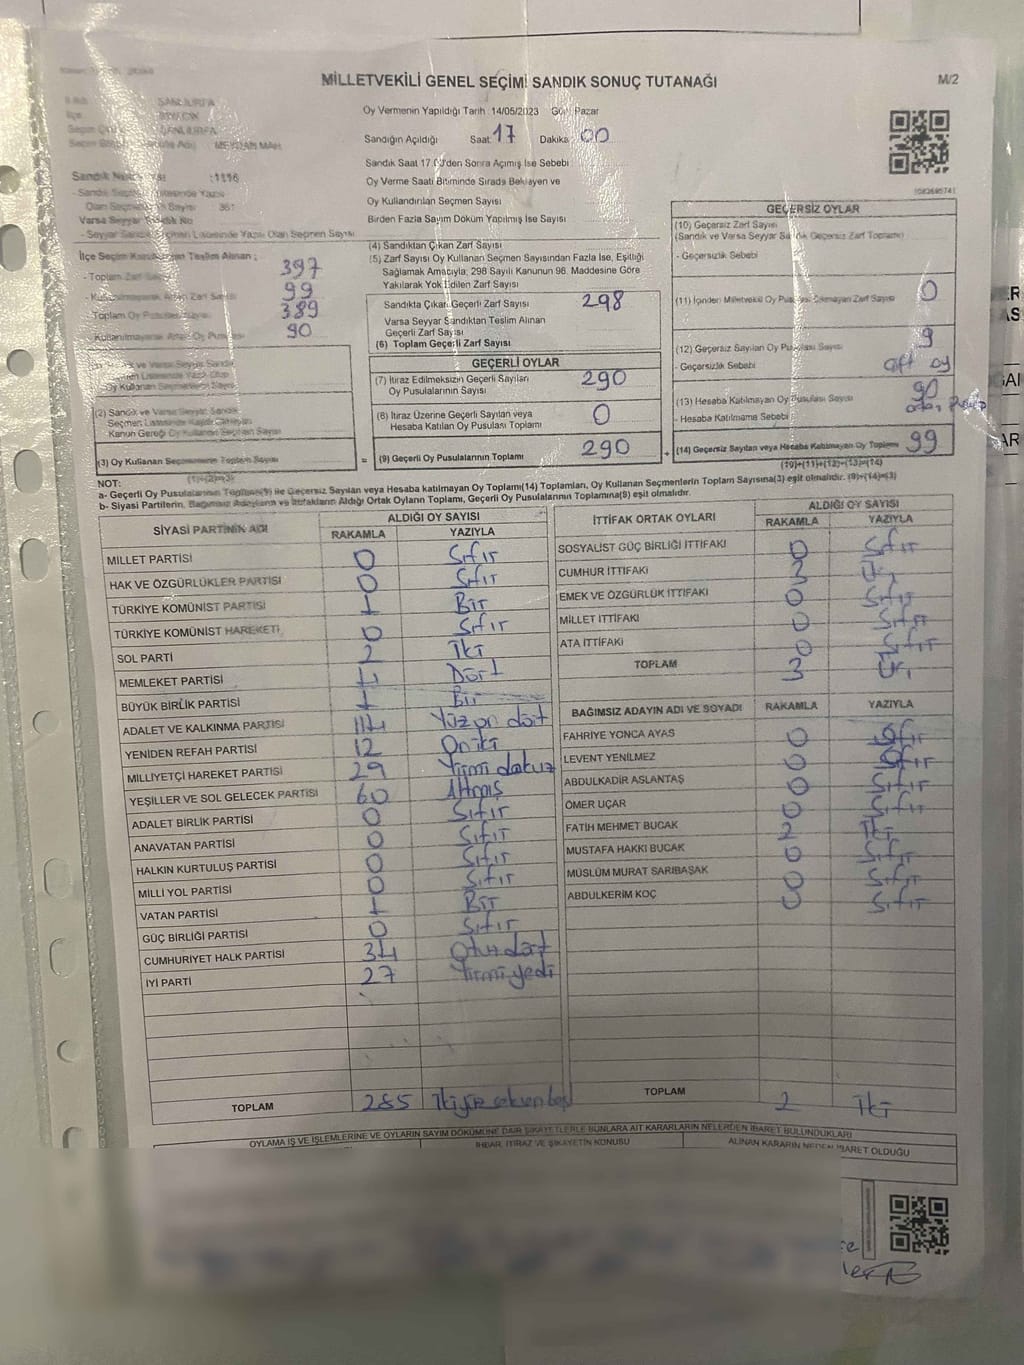 MİLLETVEKİLİ GENEL SEÇİMİ SANDIK SONUÇ TUTANAĞI
M/2
ŞANLIURFA
ŞANLIURFA
MEYDAN MAH.
Oy Vermenin Yapıldığı Tarih : 14/05/2023 Gün Pazar
Sandığın Açıldığı Saat 17 Dakika 00
Sandık Saat 17.00'den Sonra Açımış İse Sebebi
Oy Verme Saati Bitiminde Sırada Bekleyen ve
Oy Kullandırılan Seçmen Sayısı
Birden Fazla Sayım Döküm Yapılmış İse Sayısı
:1116
Olan Seçmen Sayısı 361
Varsa Seyyar Sandık No
- Seyyar Sandık Seçmen Listesinde Yazılı Olan Seçmen Sayısı
İlçe Seçim Kurulundan Teslim Alınan ;
- Toplam Zarf Sayısı 397
- Kullanılmayarak Artan Zarf Sayısı 99
- Toplam Oy Pusulası Sayısı 389
- Kullanılmayarak Artan Oy Pusulası 90
(2) Sandık ve Varsa Seyyar Sandık
Seçmen Listesinde Kayıtlı Olmayan
Kanun Gereği Oy Kullanan Seçmen Sayısı
(3) Oy Kullanan Seçmenlerin Toplam Sayısı
(1)+(2)=(3)
(4) Sandıktan Çıkan Zarf Sayısı
(5) Zarf Sayısı Oy Kullanan Seçmen Sayısından Fazla İse, Eşitliği
Sağlamak Amacıyla, 298 Sayılı Kanunun 98. Maddesine Göre
Yakılarak Yok Edilen Zarf Sayısı
Sandıkta Çıkan Geçerli Zarf Sayısı 298
Varsa Seyyar Sandıktan Teslim Alınan
Geçerli Zarf Sayısı
(6) Toplam Geçerli Zarf Sayısı
GEÇERLİ OYLAR
(7) İtiraz Edilmeksizin Geçerli Sayılan
Oy Pusulalarının Sayısı 290
(8) İtiraz Üzerine Geçerli Sayılan veya
Hesaba Katılan Oy Pusulası Toplamı 0
= (9) Geçerli Oy Pusulalarının Toplamı 290 +
GEÇERSİZ OYLAR
(10) Geçersiz Zarf Sayısı
(Sandık ve Varsa Seyyar Sandık Geçersiz Zarf Toplamı)
- Geçersizlik Sebebi
(11) İçinden Milletvekili Oy Pusulası Çıkmayan Zarf Sayısı 0
(12) Geçersiz Sayılan Oy Pusulası Sayısı 9
- Geçersizlik Sebebi çift oy
(13) Hesaba Katılmayan Oy Pusulası Sayısı 90
- Hesaba Katılmama Sebebi artan pusula
(14) Geçersiz Sayılan veya Hesaba Katılmayan Oy Toplamı 99
(10)+(11)+(12)+(13)=(14)
NOT:
a- Geçerli Oy Pusulalarının Toplamı(9) ile Geçersiz Sayılan veya Hesaba katılmayan Oy Toplamı(14) Toplamları, Oy Kullanan Seçmenlerin Toplam Sayısına(3) eşit olmalıdır. (9)+(14)=(3)
b- Siyasi Partilerin, Bağımsız Adayların ve İttifakların Aldığı Ortak Oyların Toplamı, Geçerli Oy Pusulalarının Toplamına(9) eşit olmalıdır.
SİYASİ PARTİNİN ADI
ALDIĞI OY SAYISI
RAKAMLA YAZIYLA
MİLLET PARTİSİ 0 Sıfır
HAK VE ÖZGÜRLÜKLER PARTİSİ 0 Sıfır
TÜRKİYE KOMÜNİST PARTİSİ 1 Bir
TÜRKİYE KOMÜNİST HAREKETİ 0 Sıfır
SOL PARTİ 2 İki
MEMLEKET PARTİSİ 4 Dört
BÜYÜK BİRLİK PARTİSİ 1 Bir
ADALET VE KALKINMA PARTİSİ 114 Yüz on dört
YENİDEN REFAH PARTİSİ 12 Oniki
MİLLİYETÇİ HAREKET PARTİSİ 29 Yirmi dokuz
YEŞİLLER VE SOL GELECEK PARTİSİ 60 Altmış
ADALET BİRLİK PARTİSİ 0 Sıfır
ANAVATAN PARTİSİ 0 Sıfır
HALKIN KURTULUŞ PARTİSİ 0 Sıfır
MİLLİ YOL PARTİSİ 0 Sıfır
VATAN PARTİSİ 1 Bir
GÜÇ BİRLİĞİ PARTİSİ 0 Sıfır
CUMHURİYET HALK PARTİSİ 34 Otuz dört
İYİ PARTİ 27 Yirmi yedi
TOPLAM 285 İkiyüz seksen beş
İTTİFAK ORTAK OYLARI
ALDIĞI OY SAYISI
RAKAMLA YAZIYLA
SOSYALİST GÜÇ BİRLİĞİ İTTİFAKI 0 Sıfır
CUMHUR İTTİFAKI 3 Üç
EMEK VE ÖZGÜRLÜK İTTİFAKI 0 Sıfır
MİLLET İTTİFAKI 0 Sıfır
ATA İTTİFAKI 0 Sıfır
TOPLAM 3 Üç
BAĞIMSIZ ADAYIN ADI VE SOYADI RAKAMLA YAZIYLA
FAHRİYE YONCA AYAS 0 Sıfır
LEVENT YENİLMEZ 0 Sıfır
ABDULKADİR ASLANTAŞ 0 Sıfır
ÖMER UÇAR 0 Sıfır
FATİH MEHMET BUCAK 2 İki
MUSTAFA HAKKI BUCAK 0 Sıfır
MÜSLÜM MURAT SARIBAŞAK 0 Sıfır
ABDULKERİM KOÇ 0 Sıfır
TOPLAM 2 İki
OYLAMA İŞ VE İŞLEMLERİNE VE OYLARIN SAYIM DÖKÜMÜNE DAİR ŞİKAYETLERLE BUNLARA AİT KARARLARIN NELERDEN İBARET BULUNDUKLARI
İHBAR, İTİRAZ VE ŞİKAYETİN KONUSU
ALINAN KARARIN NEDEN İBARET OLDUĞU